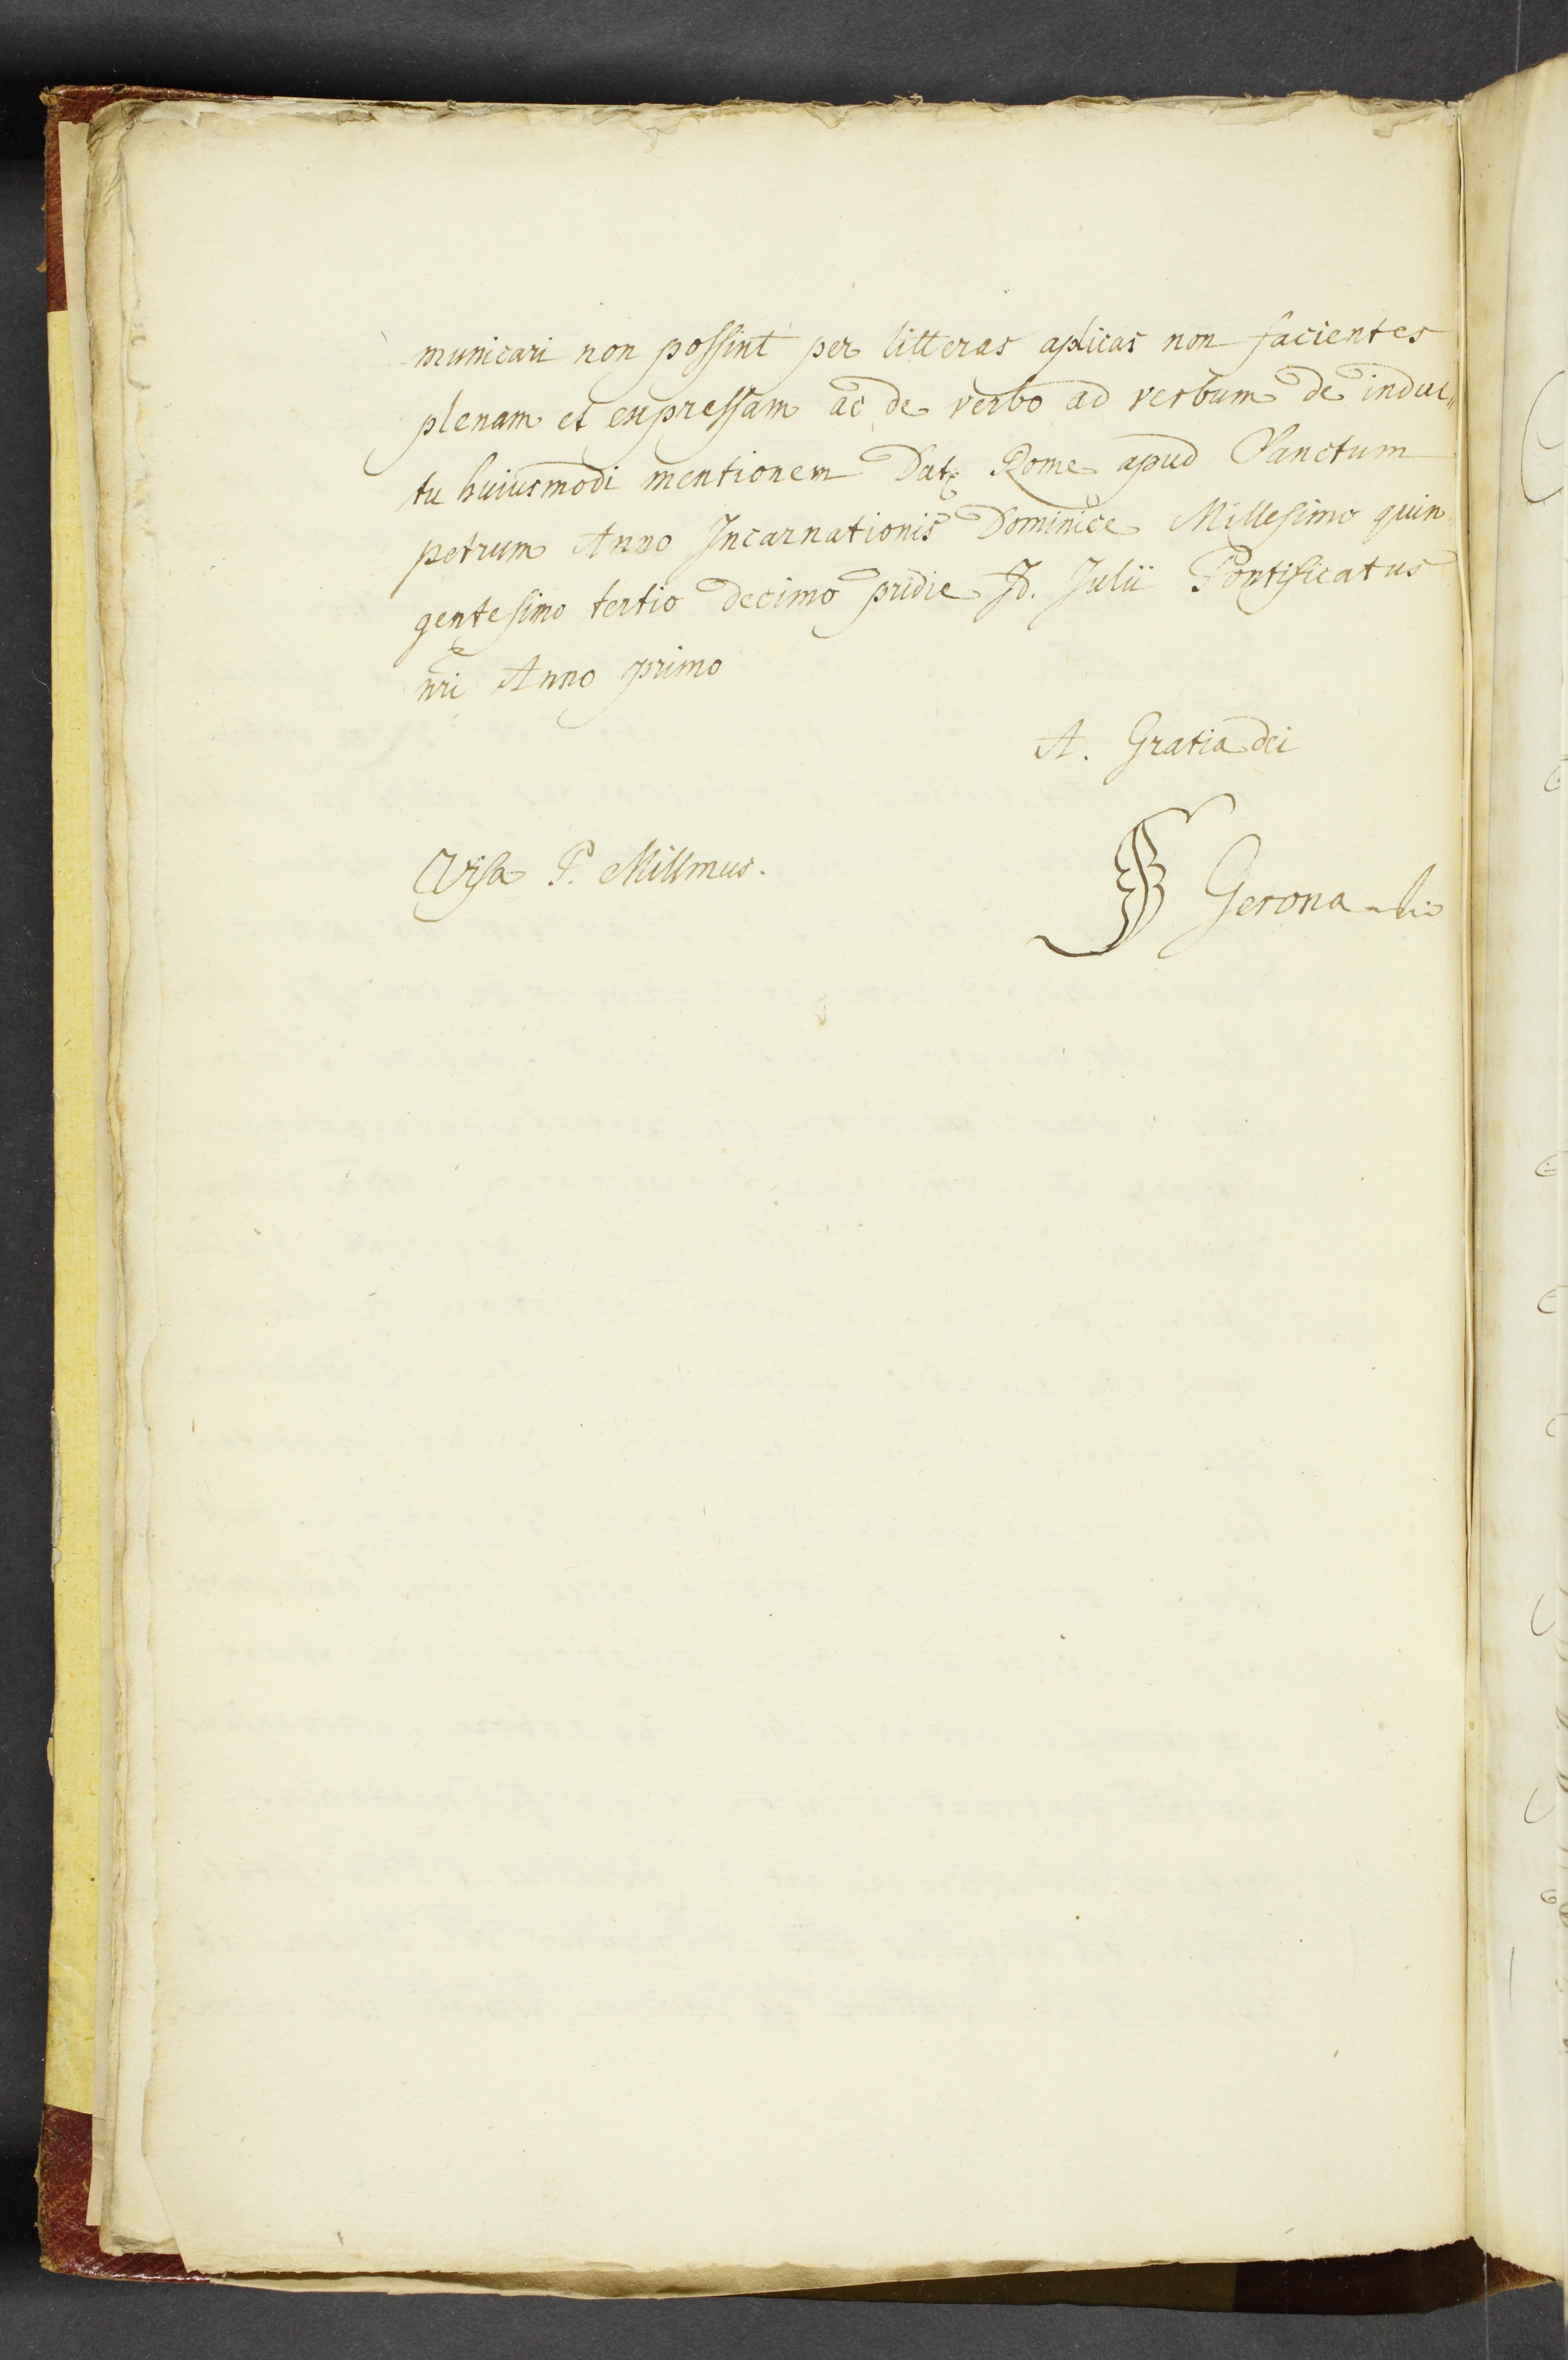 municari non possint per litteras aplicas non facientes
plenam et expressam ac de verbo ad verbum de indul„
tu huiusmodi mentionem Dat Rome apud Sanctum
petrum Anno Incarnationis Dominice Millesimo quin„
gentesimo tertio decimo pridie Id. Julii Pontificatus
nri Anno primo
A. Gratia dei
Visa P. Millmus.
Gerona